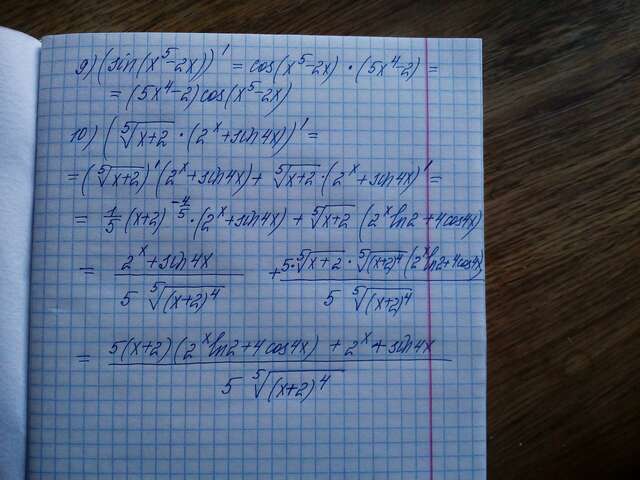 9) (sin(x⁵-2x))' = cos(x⁵-2x) · (5x⁴-2) =
= (5x⁴-2)cos(x⁵-2x)
10) (⁵√(x+2) · (2ˣ+sin4x))' =
= (⁵√(x+2))' (2ˣ+sin4x) + ⁵√(x+2) · (2ˣ+sin4x)' =
= 1/5 (x+2)^(-4/5) · (2ˣ+sin4x) + ⁵√(x+2) (2ˣln2+4cos4x)
= (2ˣ+sin4x)/(5 ⁵√((x+2)⁴)) + (5·⁵√(x+2) · ⁵√((x+2)⁴) (2ˣln2+4cos4x))/(5 ⁵√((x+2)⁴))
= (5(x+2)(2ˣln2+4cos4x) + 2ˣ+sin4x)/(5 ⁵√((x+2)⁴))